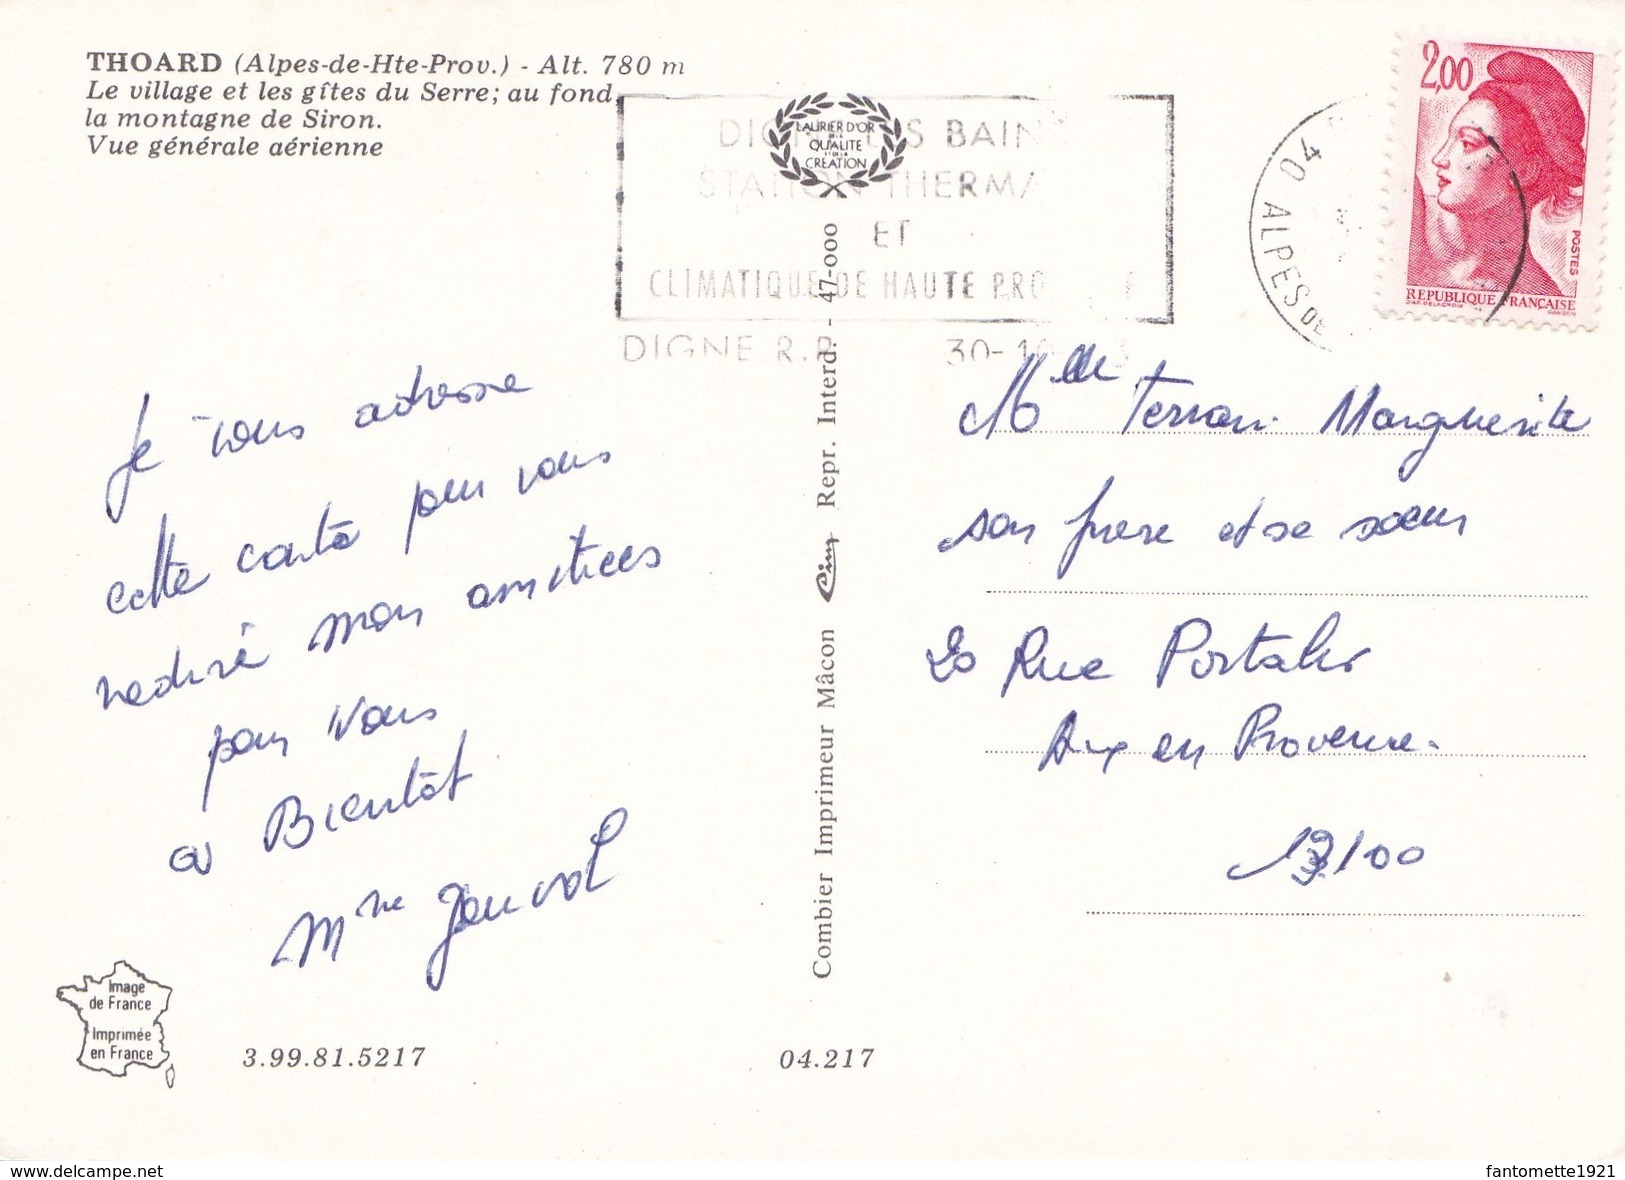 THOARD (Alpes-de-Hte-Prov.) - Alt. 780 m
Le village et les gîtes du Serre; au fond,
la montagne de Siron.
Vue générale aérienne
LAURIER D'OR
DE LA
QUALITE
ET DE LA
CREATION
DIGNE LES BAIN
STATION THERMA
ET
CLIMATIQUE DE HAUTE PRO
DIGNE R.P. 30-10
04
ALPES DE
2,00
POSTES
REPUBLIQUE FRANÇAISE
D'AP. DELACROIX GANDON
Je vous adresse
cette carte pour vous
redire mon amitiees
pour vous
a Bientôt
Mme
Combier Imprimeur Mâcon Cim Repr. Interd. - 47-000
Melle Terran Marguerite
son frere et se soeur
20 Rue Portalis
Aix en Provence.
13100
Image
de France
Imprimée
en France
3.99.81.5217
04.217
www.delcampe.net
fantomette1921